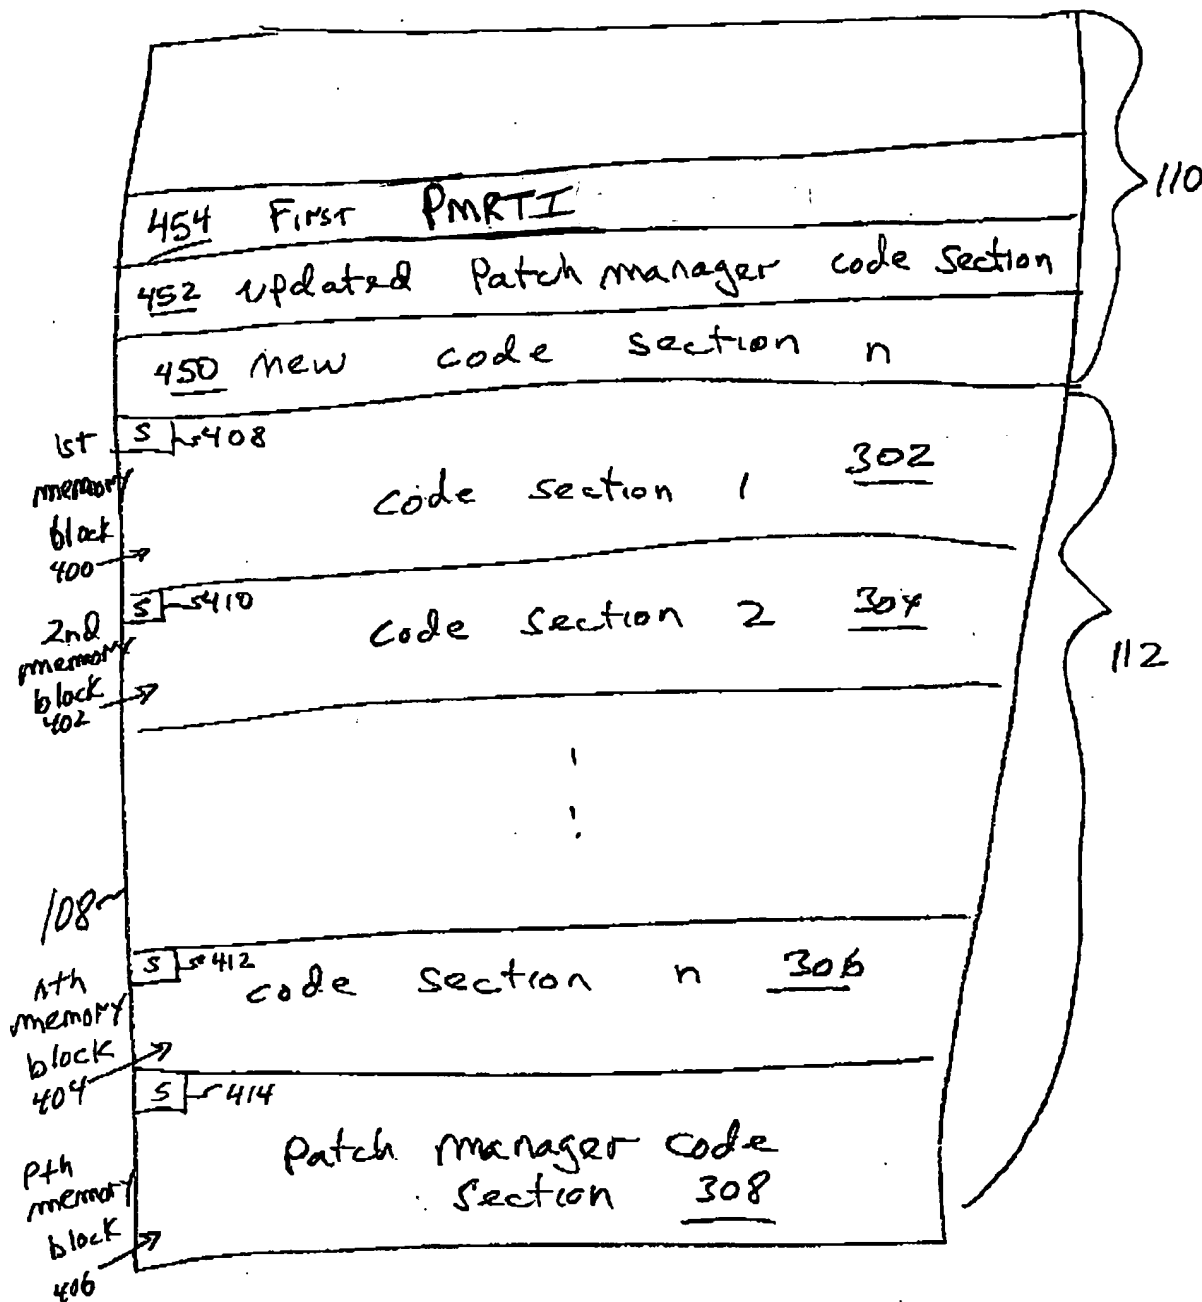 110
454 First PMRTI
452 updated Patch manager code section
450 new code section n
1st memory block 400
S 408
code section 1 302
2nd memory block 402
S 410
code section 2 304
112
108
nth memory block 404
S 412
code section n 306
S 414
Pth memory block 406
Patch manager code
section 308